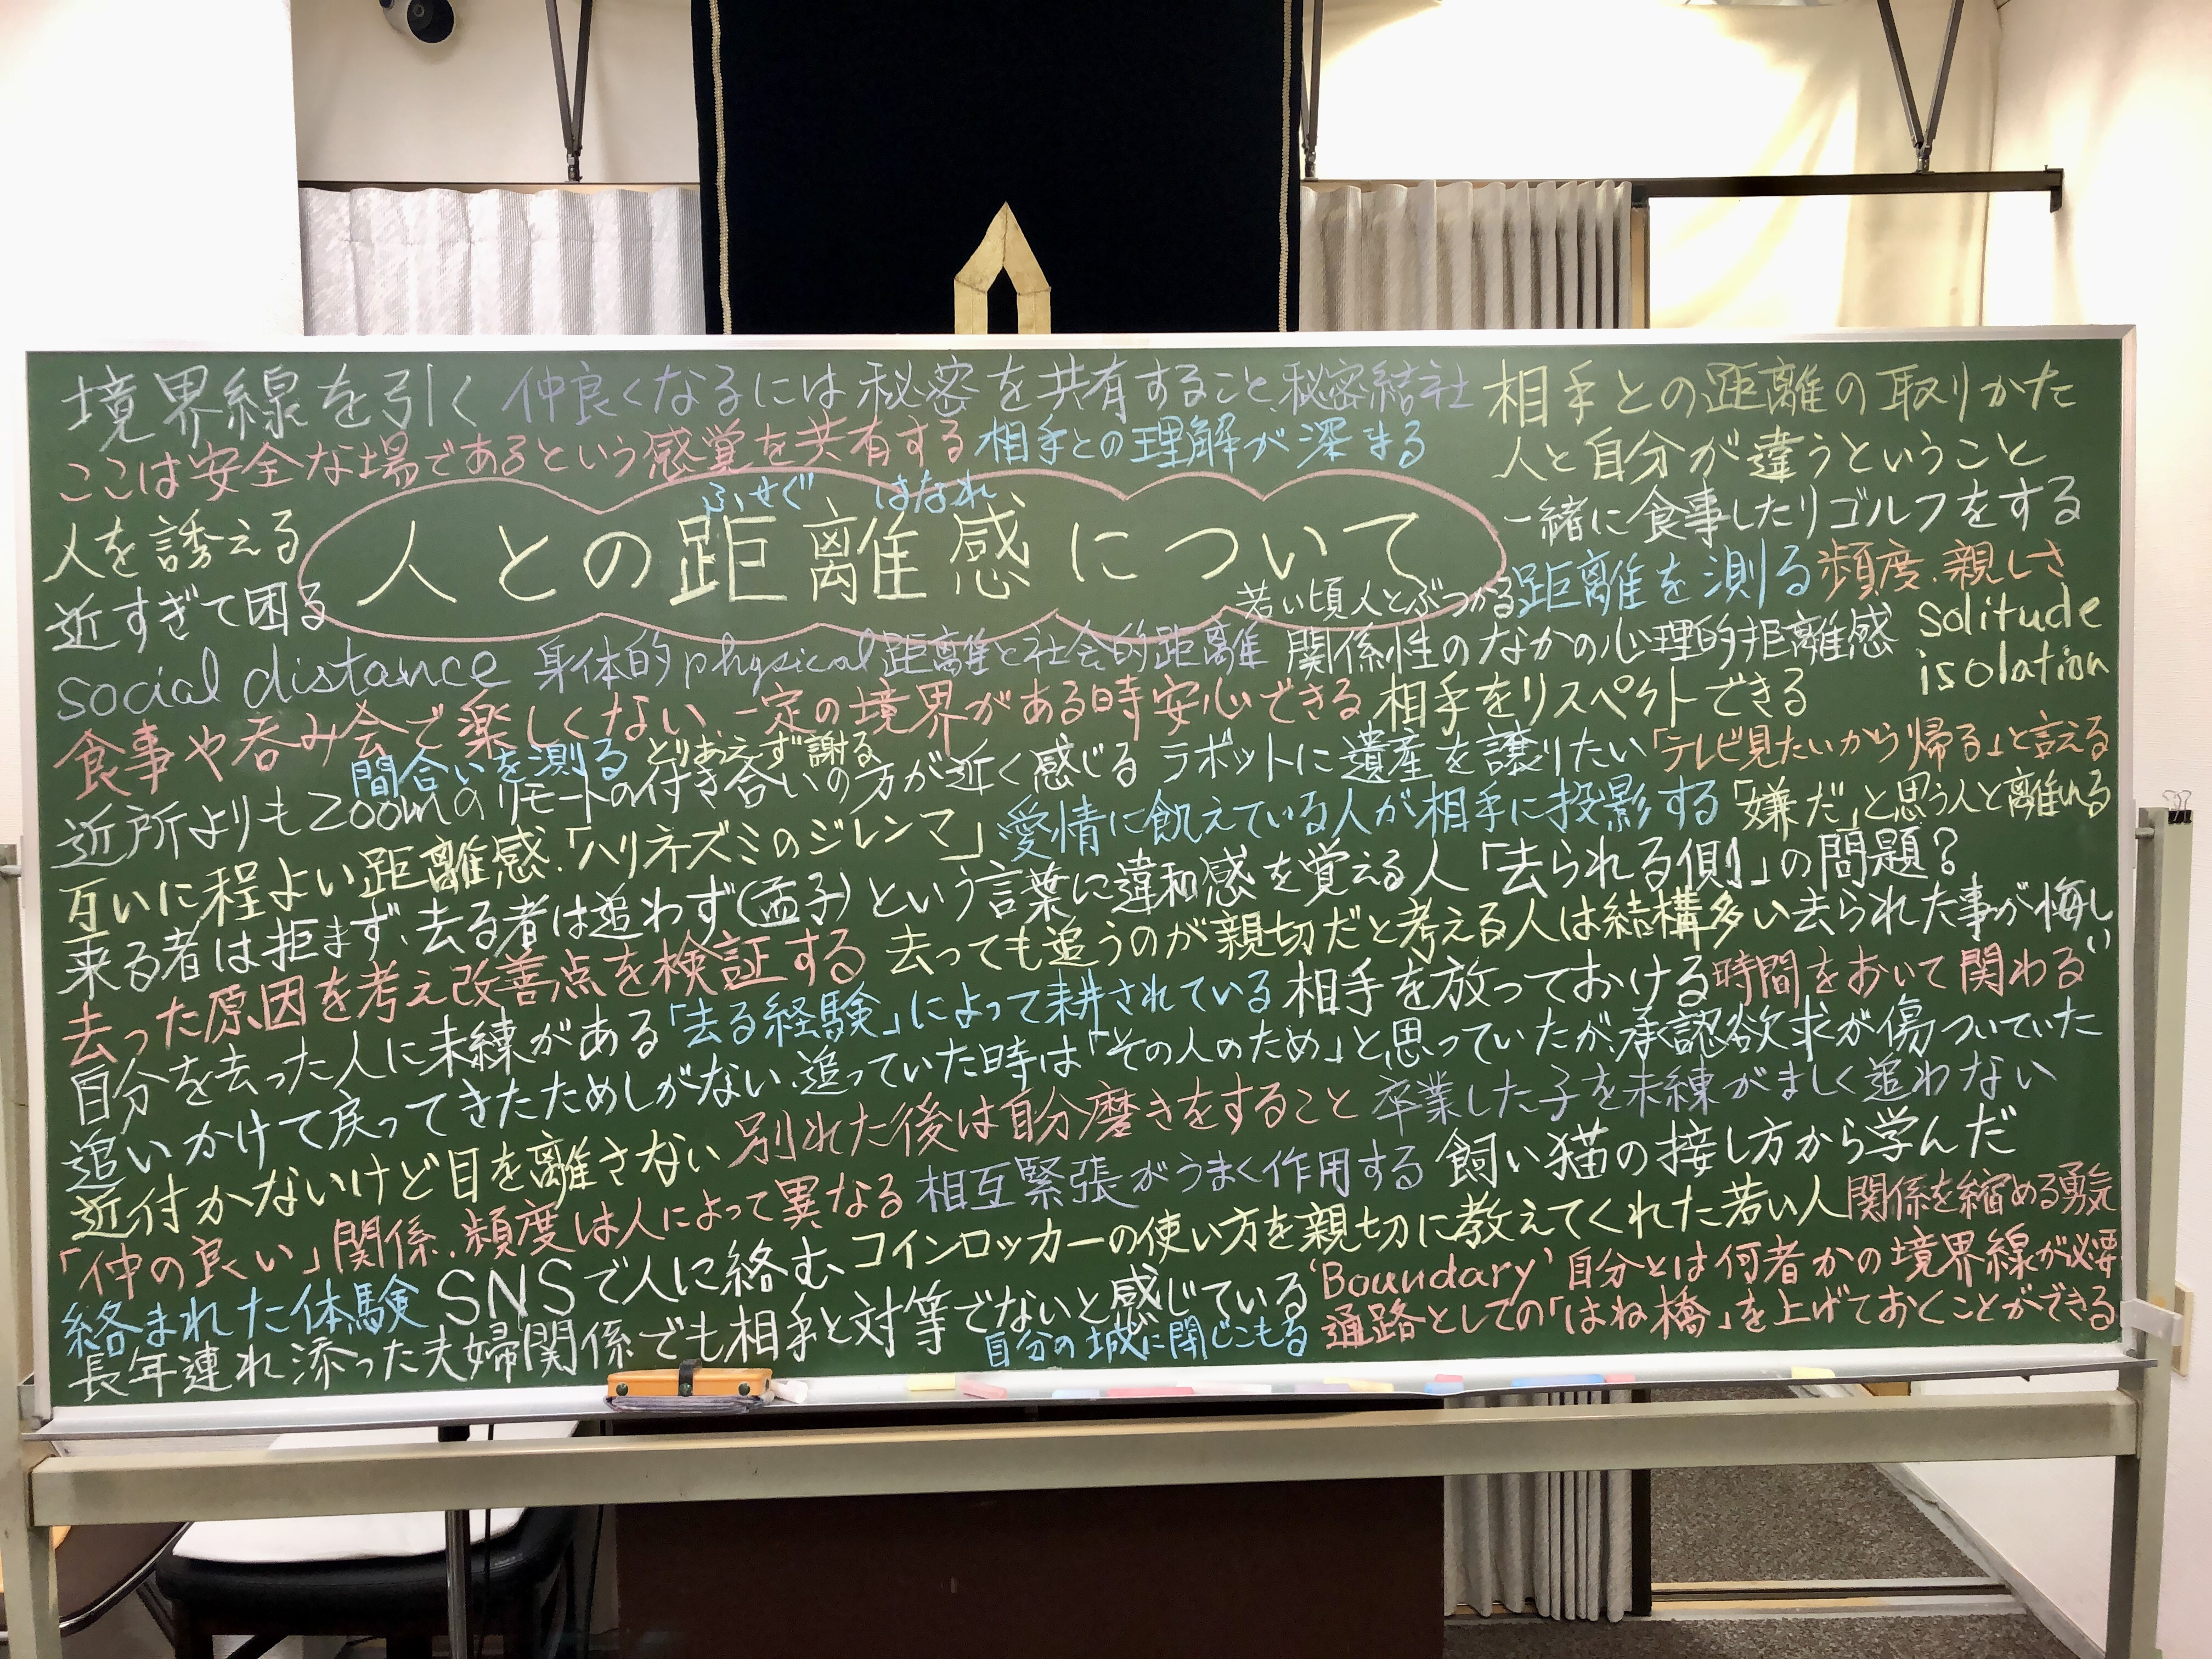 境界線を引く 仲良くなるには秘密を共有すること、秘密結社 相手との距離の取りかた
ここは安全な場であるという感覚を共有する 相手との理解が深まる 人と自分が違うということ
ふせぐ はなれ
人を誘える 人との距離感について 一緒に食事したりゴルフをする
近すぎて困る 若い頃人とぶつかる 距離を測る 頻度、親しさ
social distance 身体的physical距離と社会的距離 関係性のなかの心理的距離感 solitude
isolation
食事や呑み会で楽しくない、一定の境界がある時安心できる 相手をリスペクトできる
間合いを測る とりあえず謝る
近所よりもZoomのリモートの付き合いの方が近く感じる ラボットに遺産を譲りたい 「テレビ見たいから帰る」と言える
互いに程よい距離感、「ハリネズミのジレンマ」 愛情に飢えている人が相手に投影する 「嫌だ」と思う人と離れる
来る者は拒まず、去る者は追わず(孟子)という言葉に違和感を覚える人 「去られる側」の問題?
去った原因を考え改善点を検証する 去っても追うのが親切だと考える人は結構多い 去られた事が悔しい
自分を去った人に未練がある 「去る経験」によって耕されている 相手を放っておける 時間をおいて関わる
追いかけて戻ってきたためしがない、追っていた時は「その人のため」と思っていたが承認欲求が傷ついていた
近付かないけど目を離さない 別れた後は自分磨きをすること 卒業した子を未練がましく追わない
「仲の良い」関係、頻度は人によって異なる 相互緊張がうまく作用する 飼い猫の接し方から学んだ
絡まれた体験 SNSで人に絡む コインロッカーの使い方を親切に教えてくれた若い人 関係を縮める勇気
長年連れ添った夫婦関係でも相手と対等でないと感じている 'Boundary' 自分とは何者かの境界線が必要
自分の城に閉じこもる 通路としての「はね橋」を上げておくことができる